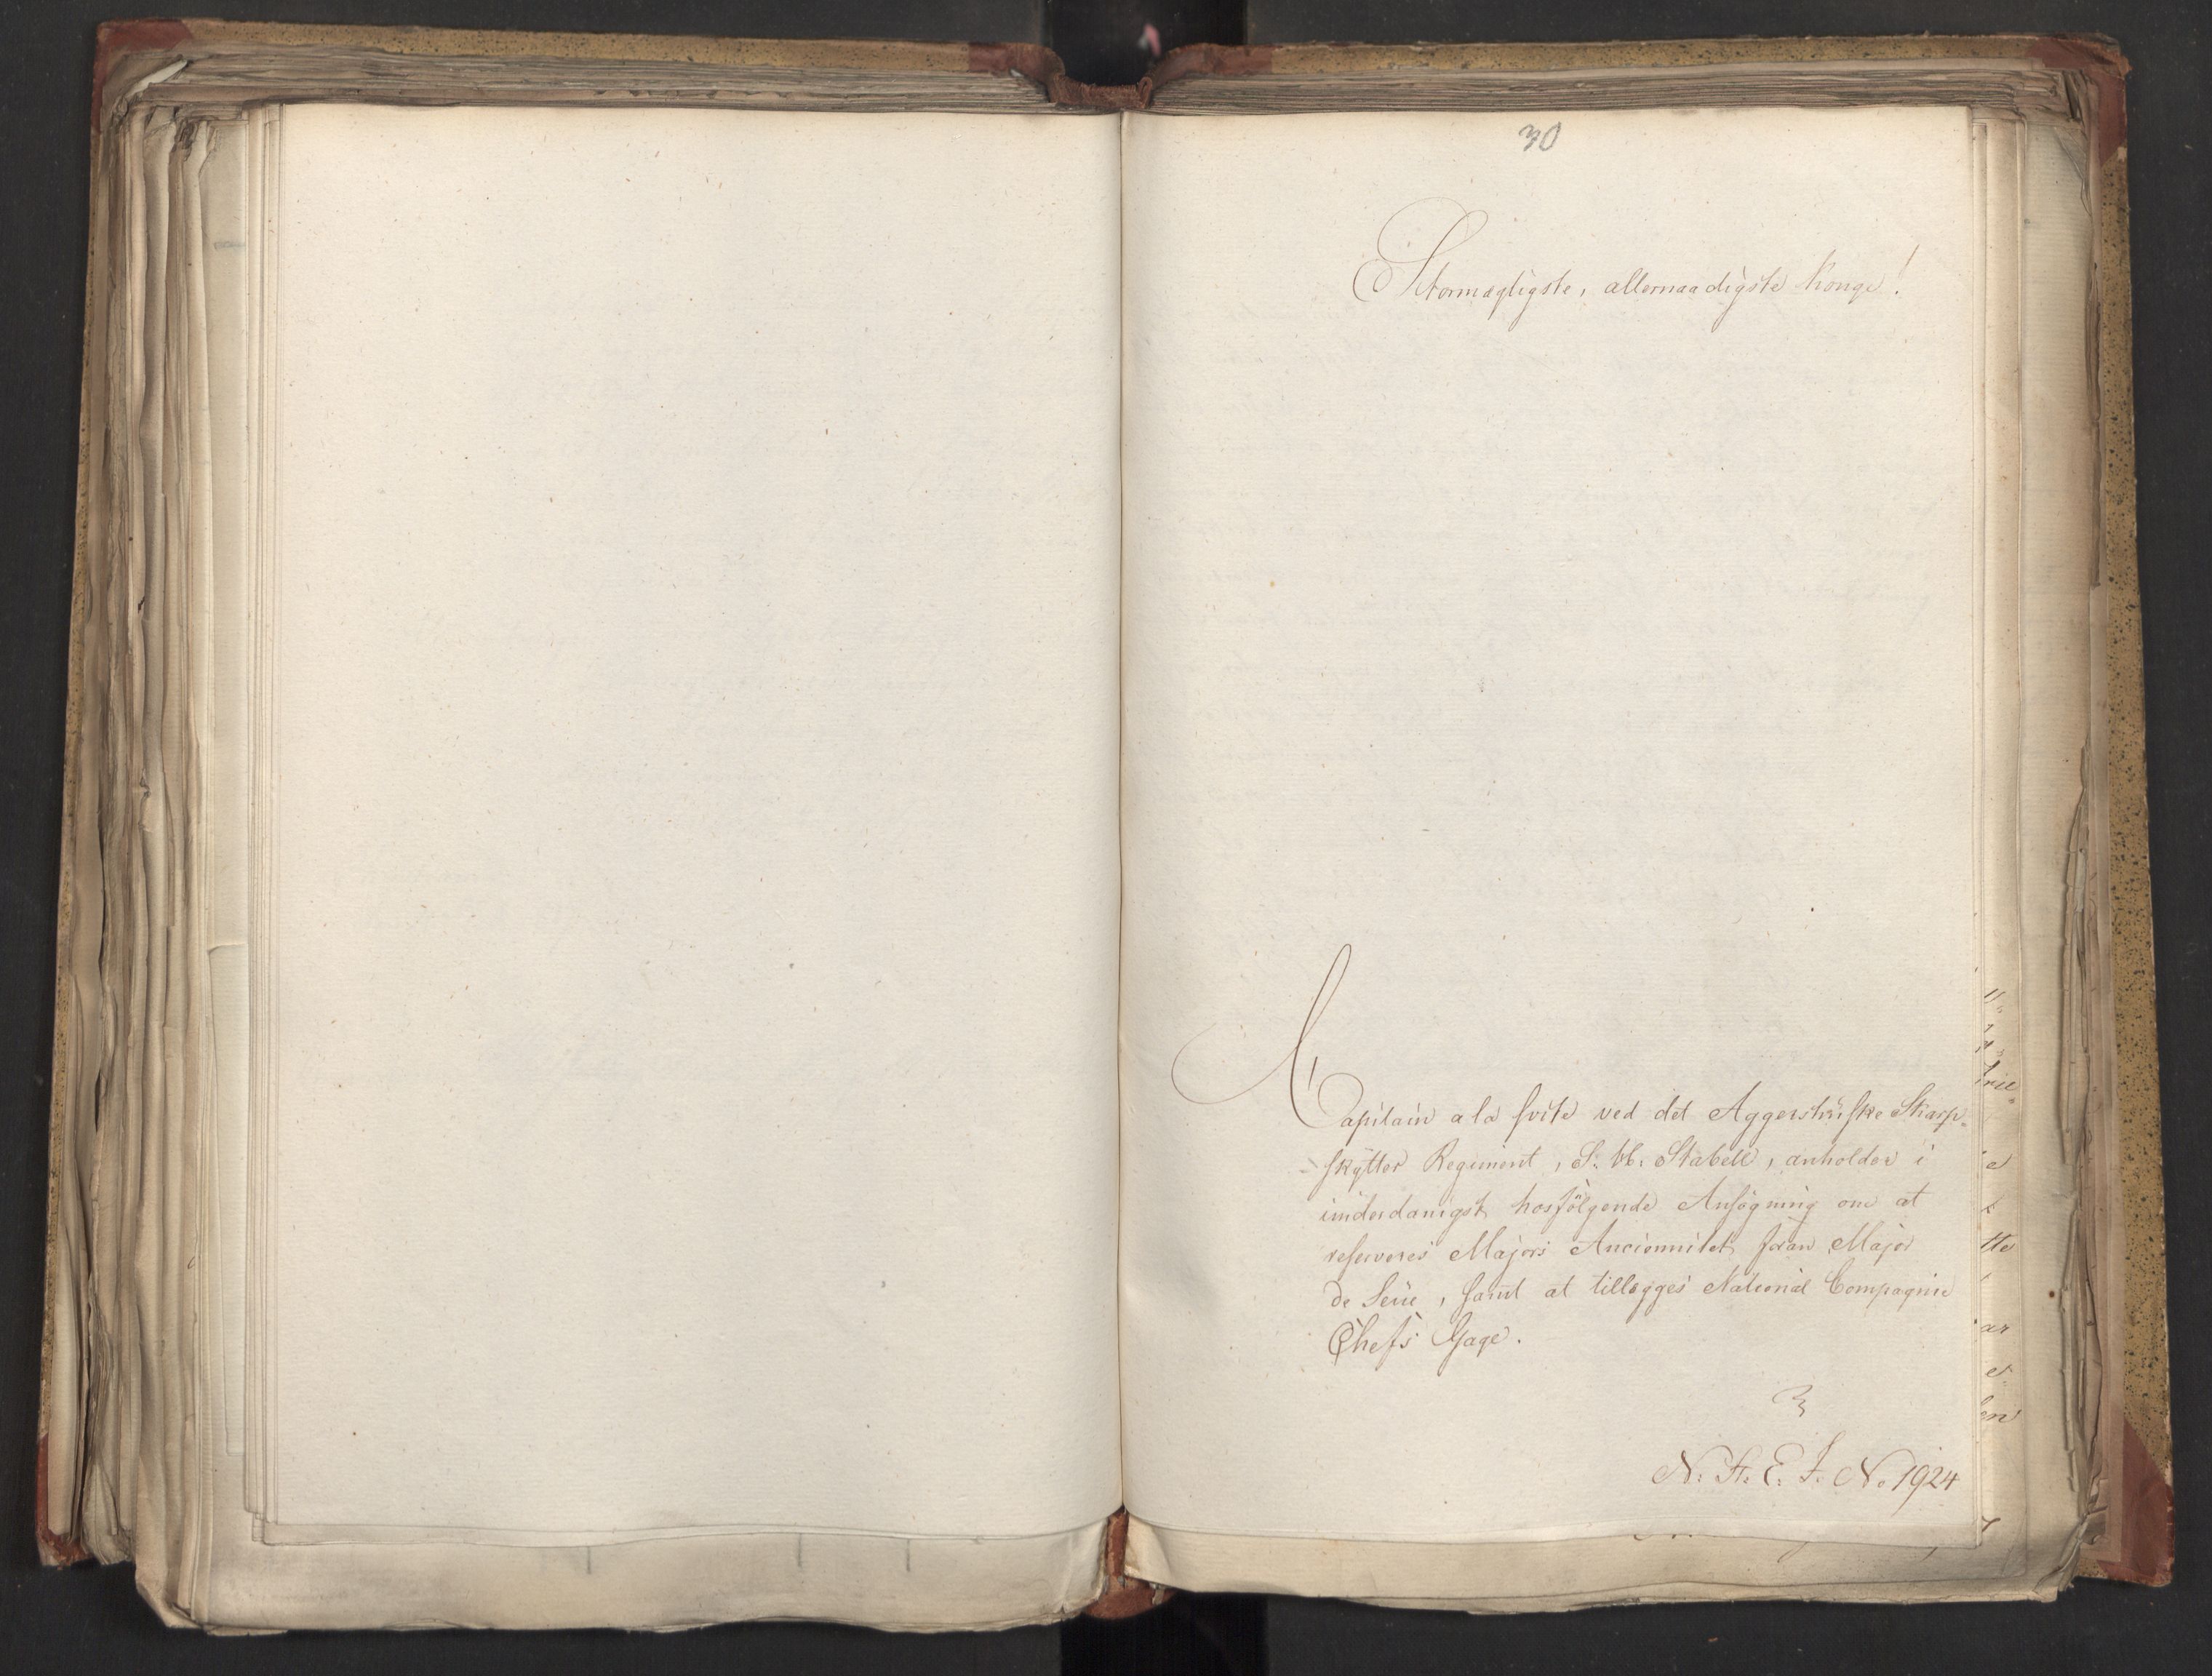 30
Stormægtigste, allernaadigste Konge!
Capitain a la suite ved det Aggershuiske Skarp-
skytter Regiment, S: W: Stabell, anholder i
underdanigst hosfölgende Ansögning om at
reserveres Majors Anciennitet foran Major
de Seue, samt at tillægges National Compagnie
Chefs Gage.
N: A: E: J: No 1924